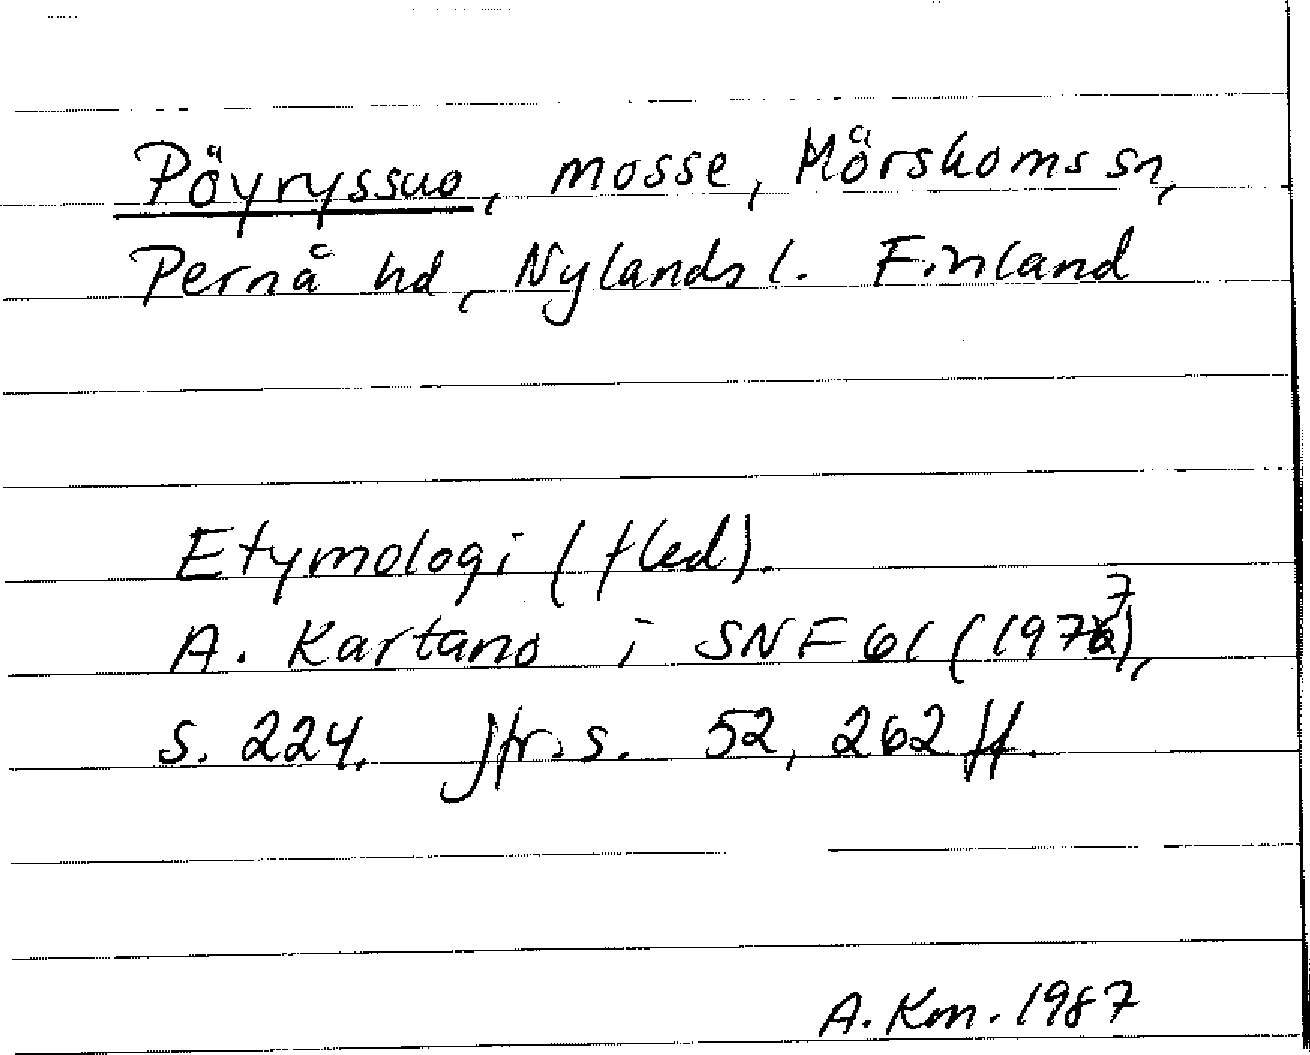 Pöyryssuo, mosse, Mörskoms sn,
Pernå hd, Nylands l. Finland
Etymologi (fled).
A. Kartano i SNF 61 (1977),
s. 224. Jfr. s. 52, 262 ff.
A. Km. 1987